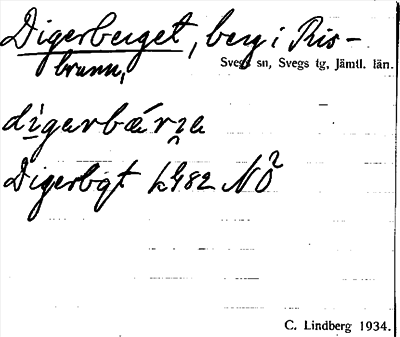 Digerberget, berg i Ris-
brunn,
Svegs sn, Svegs tg, Jämtl. län.
digərbár̯ɪe
Digerbgt k 982 NÖ²
C. Lindberg 1934.